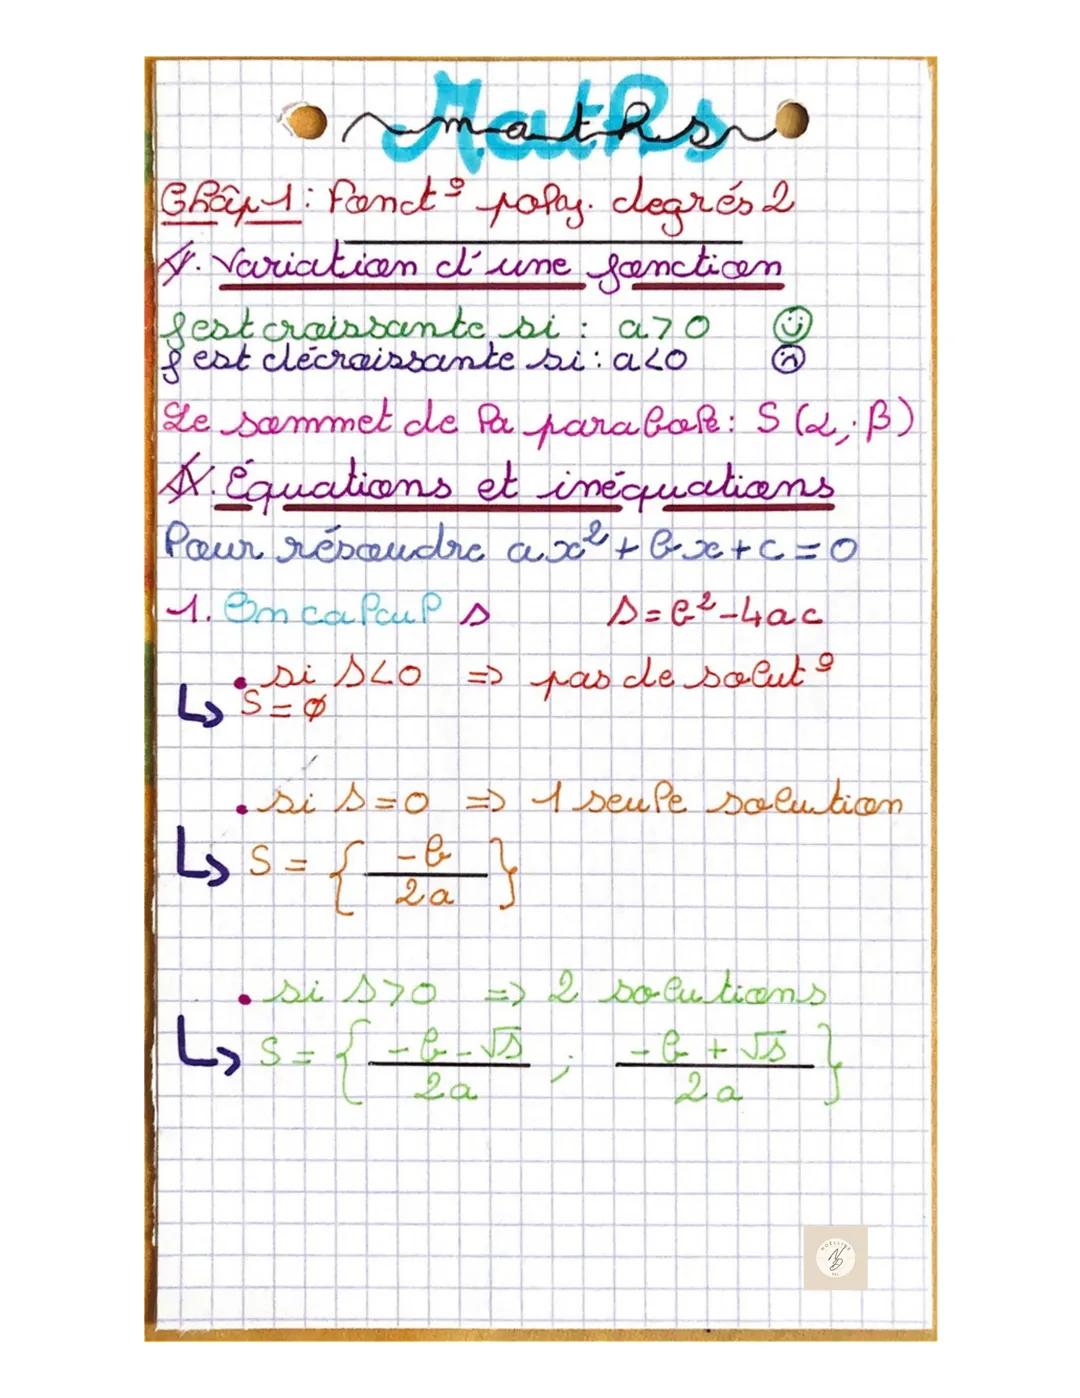 Maths
maths
Chap 1: Fonct° poly. degrés 2
I. Variation d'une fonction
f est croissante si : a>0
f est décroissante si : a<0
Le sommet de la parabole : S (α ; β)
II. Équations et inéquations
Pour résoudre ax² + bx + c = 0
1. On calcul Δ Δ = b² - 4ac
• si Δ<0 => pas de solut°
↳ S = ∅
• si Δ=0 => 1 seule solution
↳ S = { -b / 2a }
• si Δ>0 => 2 solutions
↳ S = { -b-√Δ / 2a ; -b+√Δ / 2a }